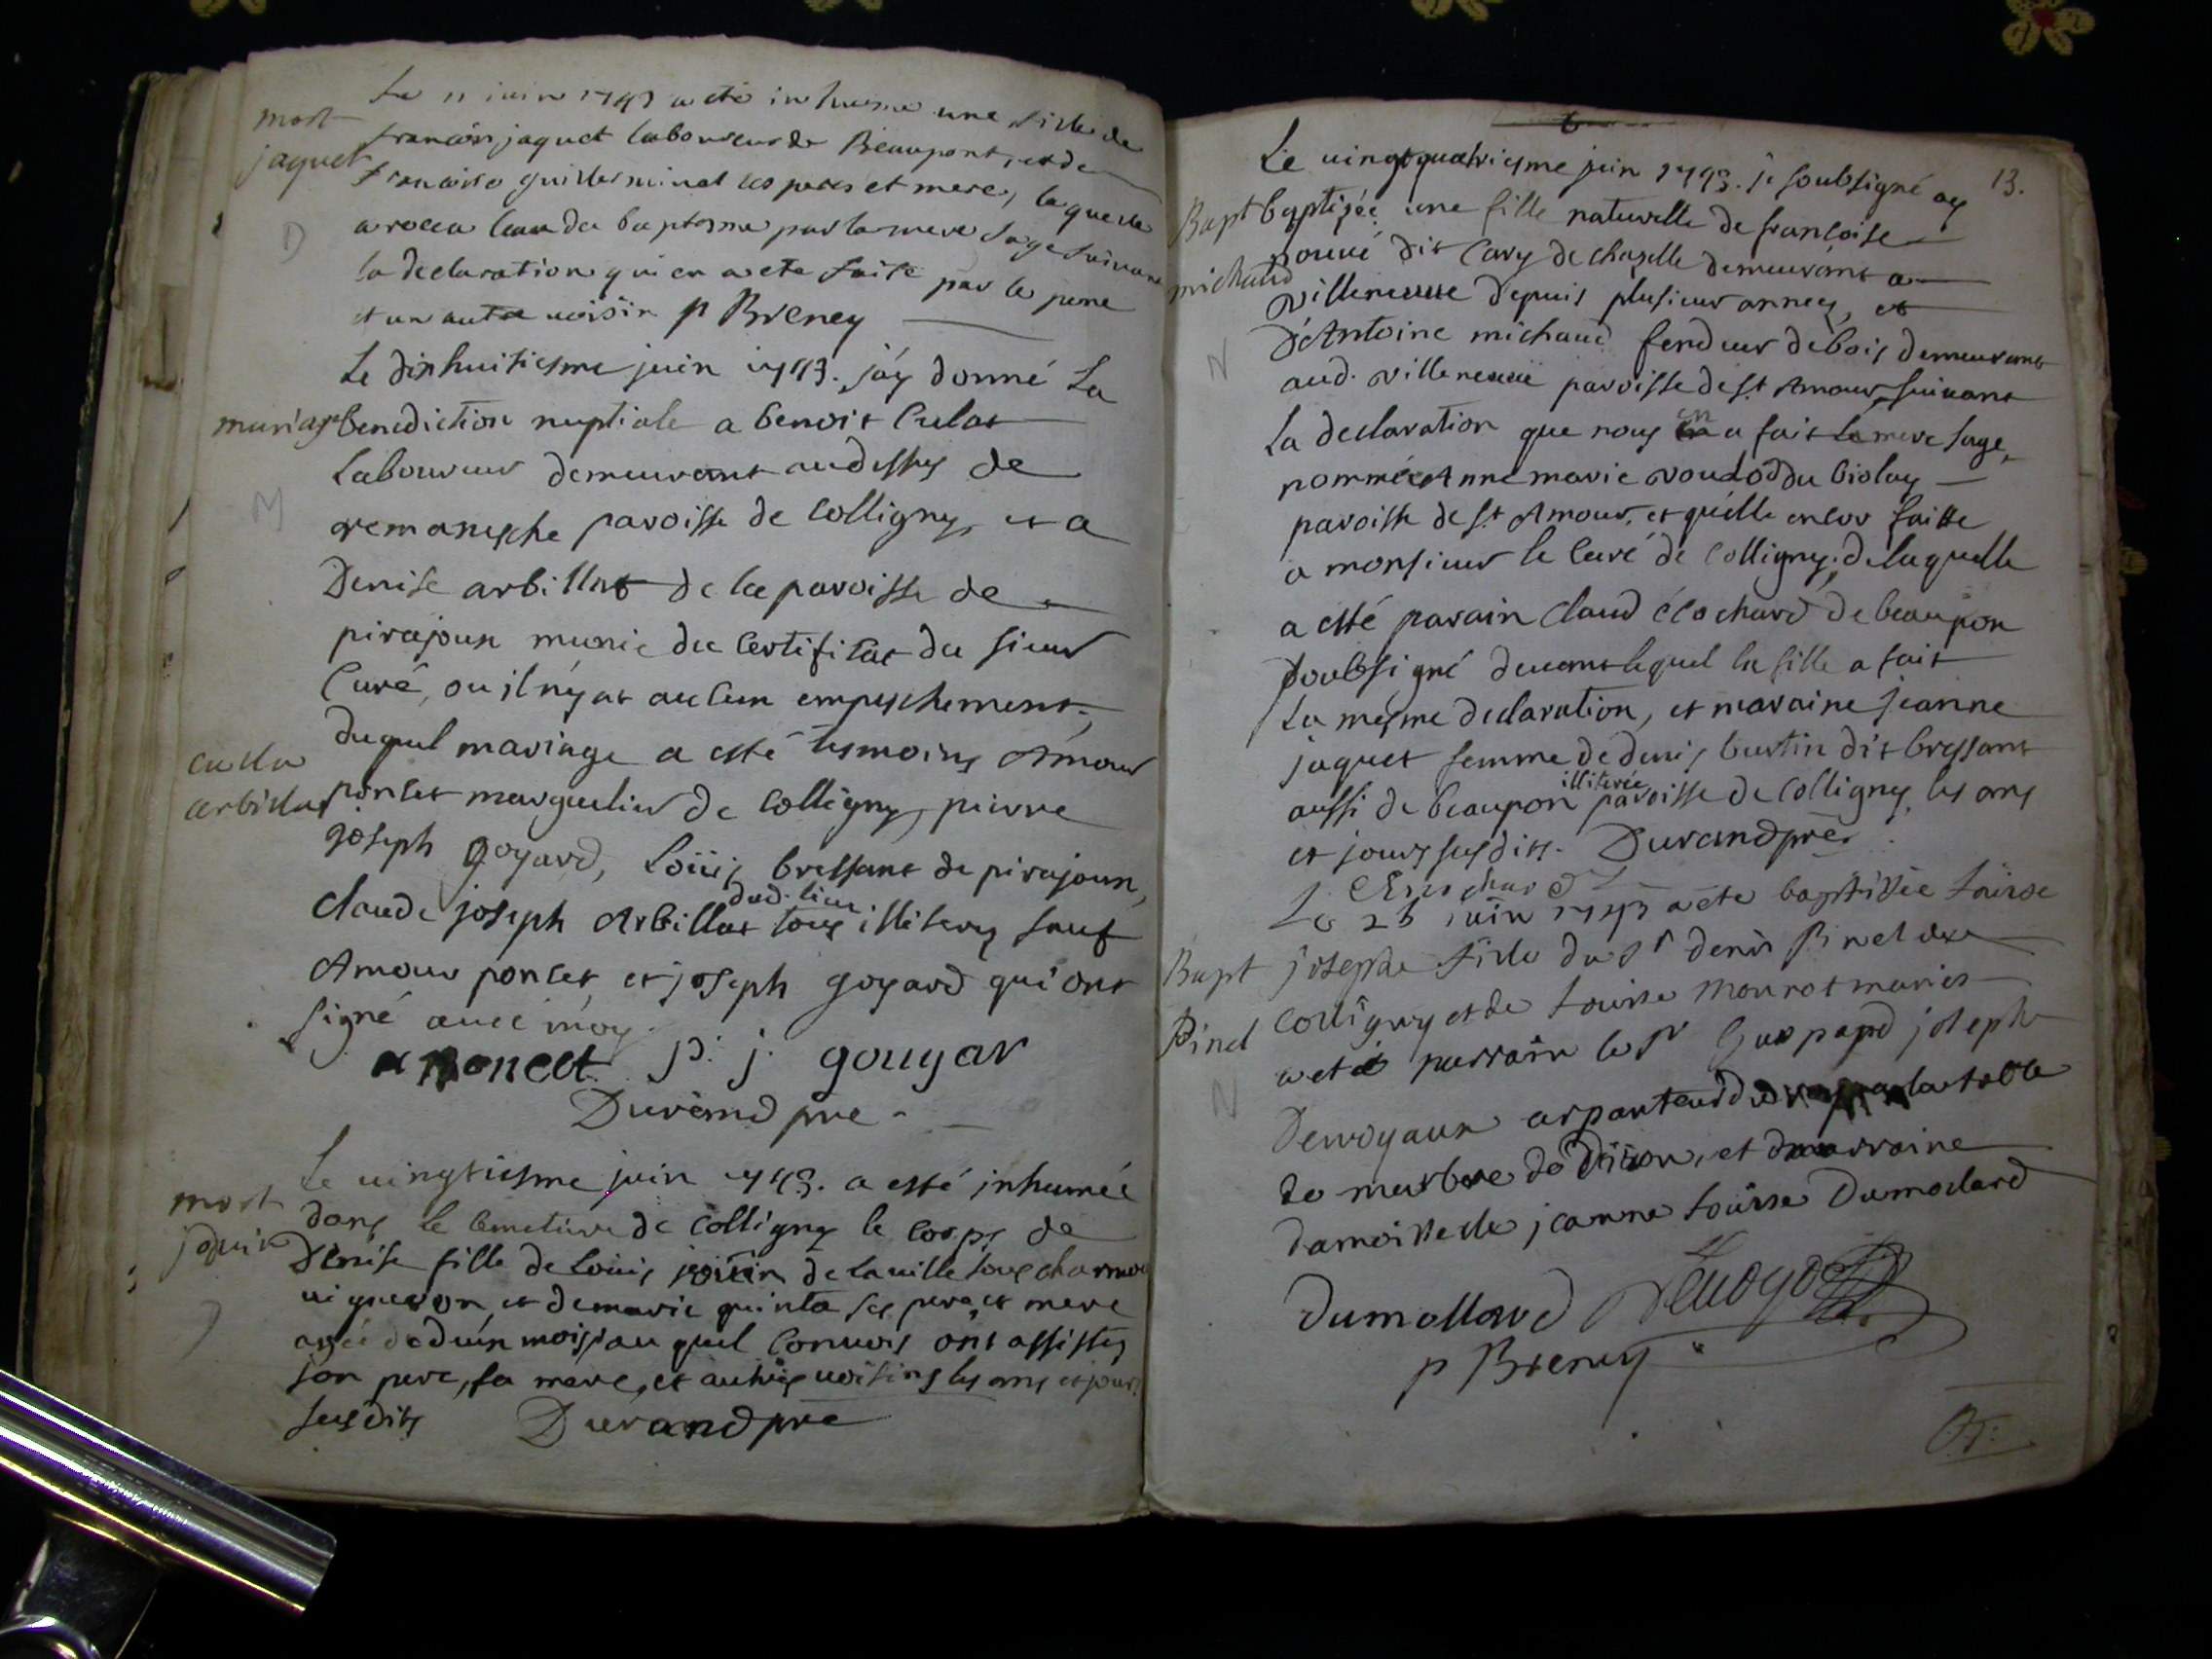 Le 11 juin 1743 a eté inhumé une fille de
mort
francois jaquet laboureur de Beaupont, et de
jaquet
francoise guillerminet ses peres et mere, laquelle
a receu leau du baptesme par la mere sage suivant
D
la declaration qui en a eté faite par le pere
et un autre voisin p Breney
Le dixhuitiesme juin 1743. j'ay donné La
mariage
benediction nuptiale a benoit Culat
Laboureur demeurant audessus de
M
paroisse de Colligny, et a
Denise arbillat de la paroisse de
pirajoux munie du Certificat du sieur
Curé, ou il n'y at aucun empeschement,
duquel mariage a esté tesmoins Amour
culla
arbillat
poncet marguelier de Colligny, pierre
joseph goyard, Loüis bressant de pirajoux,
dud. lieu
claude joseph Arbillat tous illiterez sauf
Amour poncet, et joseph goyard qui ont
signé avec moy.
a poncet p. j. gouyar
Durand pre
Le vingtiesme juin 1743. a esté inhumée
mort
dans le Cemetiere de Colligny le Corps de
joüin
Denise fille de Loüis joüin de la ville sous charmou
vigneron, et de marie quinta ses pere et mere
agée de d'un mois, au quel Convois ont assistez
D
son pere, sa mere, et autres voisins les ans et jours
susdits Durand pre
13.
Le vingtquatriesme juin 1743. je soubsigné ay
Bapt
baptisée une fille naturelle de francoise
michaud
dit Cary de chazelle demeurant a
villeneuve depuis plusieur années, et
d'Antoine michaud fendeur de bois demeurant
N
aud. villeneuve paroisse de St Amour, suivant
La declaration que nous en a fait la mere sage,
nommée Anne marie du biolay
paroisse de St Amour, et qu'elle encor faitte
a monsieur le Curé de Colligny, de laquelle
a esté parain Claud de beaupon
soubsigné devant lequel la fille a fait
La mesme declaration, et maraine jeanne
jaquet femme de denis burtin dit bressant
illiterée
aussi de beaupon paroisse de Colligny les ans
et jours susdits. Durand pre
Le 25 juin 1743 a eté baptisée Loüise
Bapt
josephe fille du Sr denis Pinel de
Pinel
Colligny et de Louise Monrot mariés
a eté parrain le Sr Gaspapd joseph
N
Devoyaux arpanteur de la table
de marbre de Dijon, et marraine
damoiselle jeanne Loüise Dumolard
Dumollard
p Breney